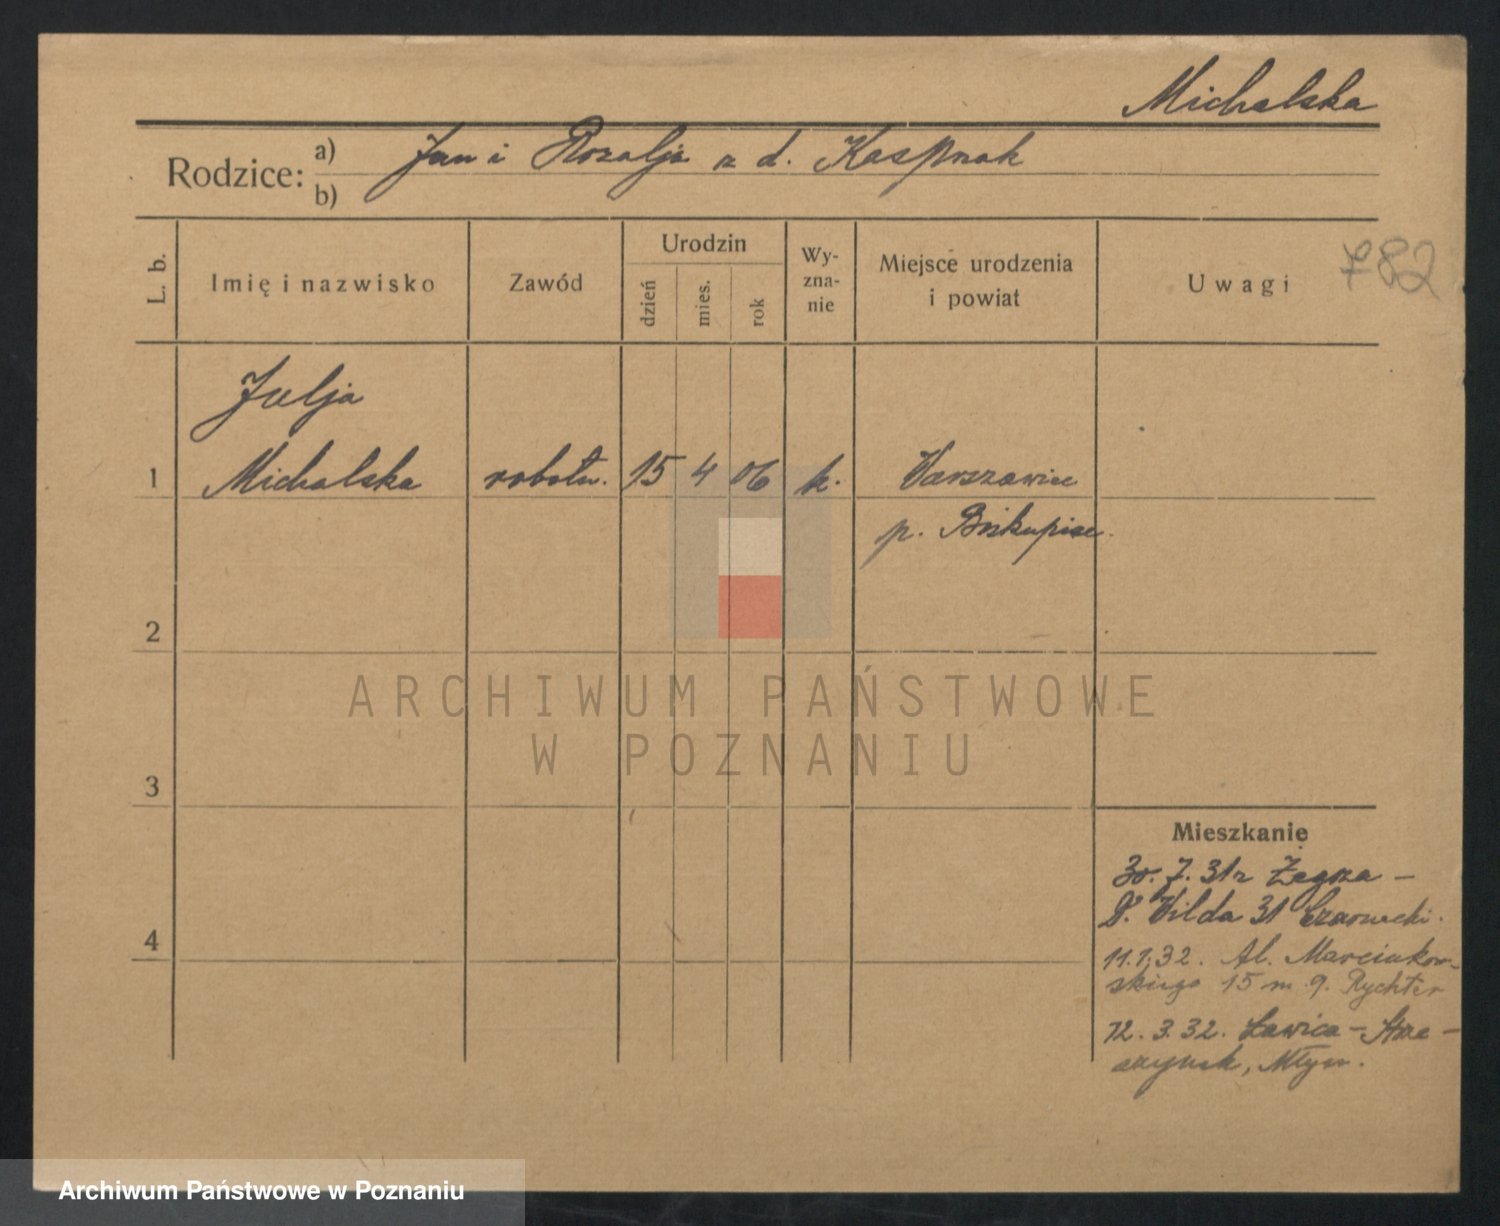 Michalska
Rodzice: a) Jan i Rozalja z d. Kasprzak
b)
L. b.
Imię i nazwisko
Zawód
Urodzin
dzień
mies.
rok
Wy-
zna-
nie
Miejsce urodzenia
i powiat
Uwagi
782
Julja
1 Michalska robotn. 15 4 06 k. Warszawice
p. Biskupice.
2
ARCHIWUM PAŃSTWOWE
W POZNANIU
3
Mieszkanie
30. 7. 31 r Żegrza -
D. Wilda 31 Czarnecki.
4
11.1.32. Al. Marcinkow-
skiego 15 m 9. Rychter
12. 3. 32. Ławica - Strze-
szynek, Młyn.
Archiwum Państwowe w Poznaniu